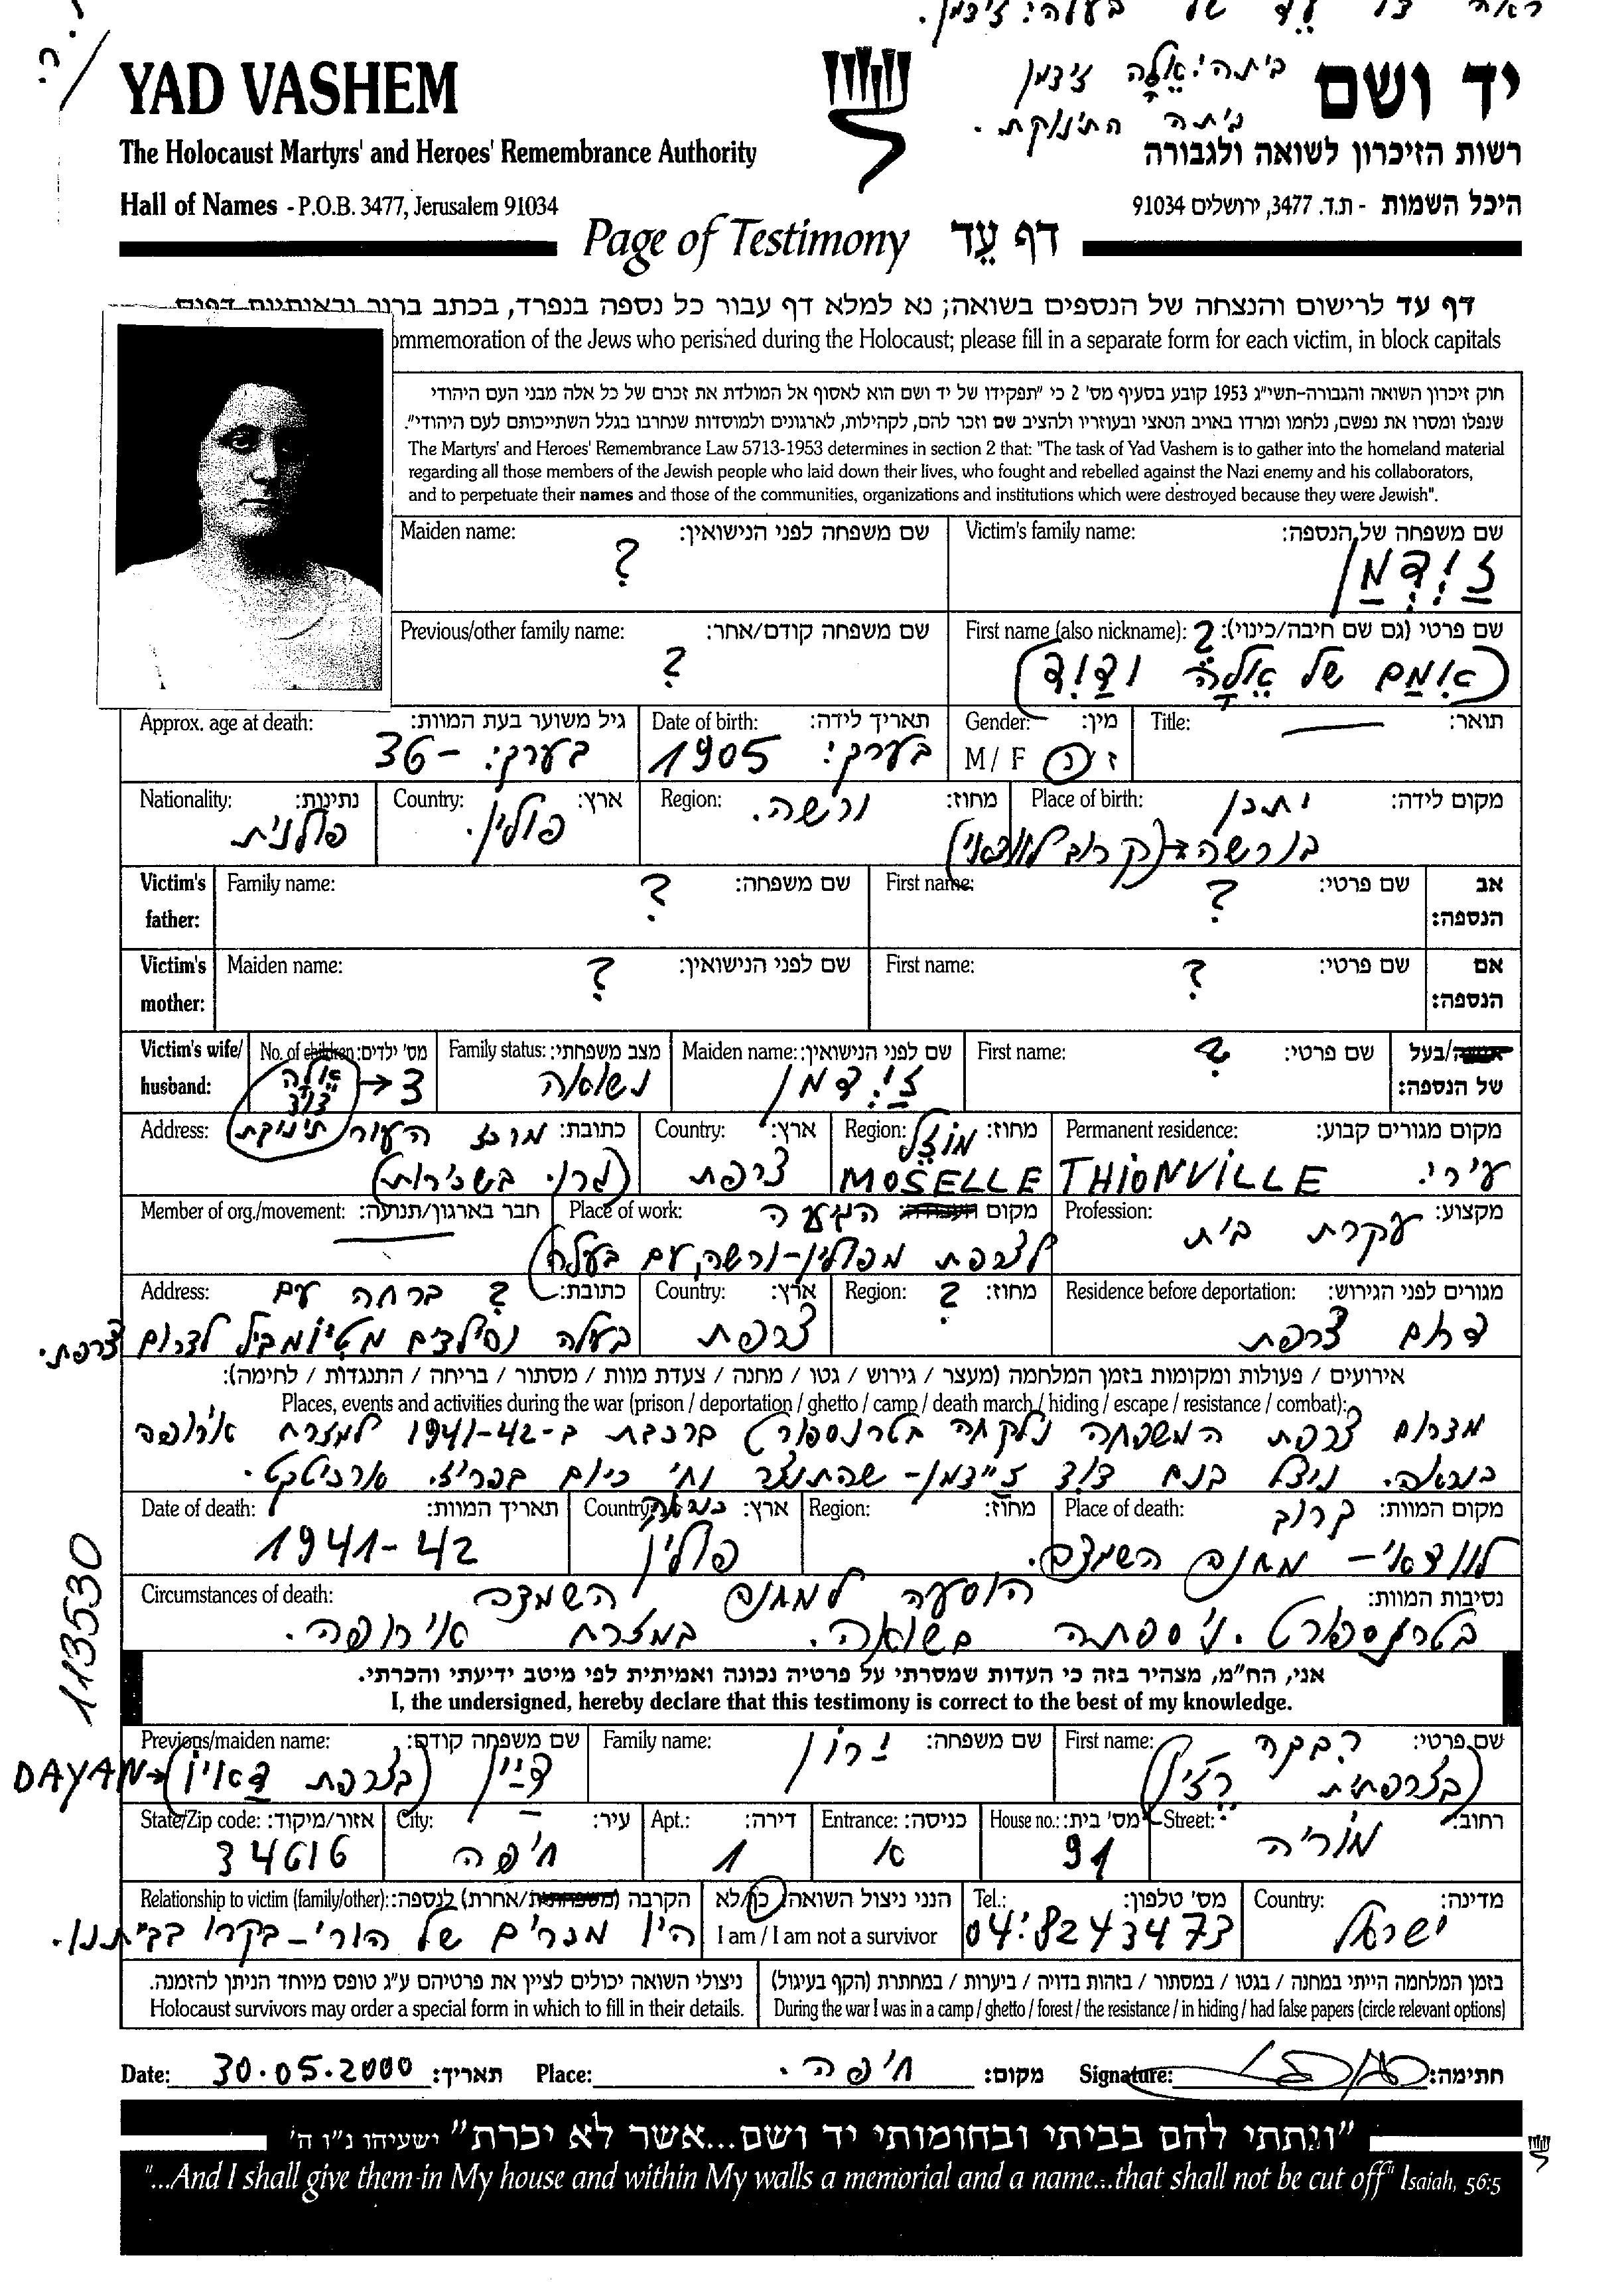 ראה דף עד של בעלה: זידמן.
YAD VASHEM
ביתה: אלה זידמן
יד ושם
ביתה התינוקת.
The Holocaust Martyrs' and Heroes' Remembrance Authority
רשות הזיכרון לשואה ולגבורה
Hall of Names - P.O.B. 3477, Jerusalem 91034
היכל השמות - ת.ד. 3477, ירושלים 91034
Page of Testimony דף עֵד
דף עד לרישום והנצחה של הנספים בשואה; נא למלא דף עבור כל נספה בנפרד, בכתב ברור ובאותיות דפוס
ommemoration of the Jews who perished during the Holocaust; please fill in a separate form for each victim, in block capitals
חוק זיכרון השואה והגבורה-תשי״ג 1953 קובע בסעיף מס' 2 כי ״תפקידו של יד ושם הוא לאסוף אל המולדת את זכרם של כל אלה מבני העם היהודי
שנפלו ומסרו את נפשם, נלחמו ומרדו באויב הנאצי ובעוזריו ולהציב שם וזכר להם, לקהילות, לארגונים ולמוסדות שנחרבו בגלל השתייכותם לעם היהודי״.
The Martyrs' and Heroes' Remembrance Law 5713-1953 determines in section 2 that: "The task of Yad Vashem is to gather into the homeland material
regarding all those members of the Jewish people who laid down their lives, who fought and rebelled against the Nazi enemy and his collaborators,
and to perpetuate their names and those of the communities, organizations and institutions which were destroyed because they were Jewish".
שם משפחה של הנספה: Victim's family name:
זַיְדְמַן
שם משפחה לפני הנישואין: Maiden name:
?
שם פרטי (גם שם חיבה/כינוי): First name (also nickname): ?
(אִמָם של אֵלָה ודָוִד)
שם משפחה קודם/אחר: Previous/other family name:
?
תואר: Title: —
מין: Gender: ז / נ M / F
תאריך לידה: Date of birth:
בערך: 1905
גיל משוער בעת המוות: Approx. age at death:
בערך: - 36
מקום לידה: Place of birth: יתכן
בורשה (קרוב לוודאי)
מחוז: Region: ורשה.
ארץ: Country: פולין.
נתינות: Nationality: פולנית
אב הנספה: Victim's father:
שם פרטי: First name: ?
שם משפחה: Family name: ?
אם הנספה: Victim's mother:
שם פרטי: First name: ?
שם לפני הנישואין: Maiden name: ?
אשה/בעל של הנספה: Victim's wife/husband:
שם פרטי: First name: ?
שם לפני הנישואין: Maiden name: זַיְדְמַן
מצב משפחתי: Family status: נשואה
מס' ילדים: No. of children: 3 ← אלה דוד תינוקת
מקום מגורים קבוע: Permanent residence:
עירי. THIONVILLE
מחוז: Region: מוזל MOSELLE
ארץ: Country: צרפת
כתובת: Address: מרכז העיר
(גרו בשכירות)
מקצוע: Profession: עקרת בית
מקום העבודה: Place of work: הגיעה
לצרפת מפולין-ורשה, עם בעלה
חבר בארגון/תנועה: Member of org./movement: —
מגורים לפני הגירוש: Residence before deportation:
דרום צרפת
מחוז: Region: ?
ארץ: Country: צרפת
כתובת: Address: ? ברחה עם
בעלה וסילדים מטיומביל לדרום צרפת.
אירועים / פעולות ומקומות בזמן המלחמה (מעצר / גירוש / גטו / מחנה / צעדת מוות / מסתור / בריחה / התנגדות / לחימה):
Places, events and activities during the war (prison / deportation / ghetto / camp / death march / hiding / escape / resistance / combat):
מדרום צרפת המשפחה נלקחה בטרנספורט ברכבת ב-1941-42 למזרח אירופה
כנראה. ניצל בנם דוד זיידמן - שהתנצר וחי כיום בפריז. ארכיטקט.
מקום המוות: Place of death: קרוב
לוודאי - מחנה השמדה.
מחוז: Region:
ארץ: Country: כנראה
פולין
תאריך המוות: Date of death:
1941-42
נסיבות המוות: Circumstances of death: הוסעה למחנה השמדה
בטרנספורט. ניספתה בשואה. במזרח אירופה.
אני, הח״מ, מצהיר בזה כי העדות שמסרתי על פרטיה נכונה ואמיתית לפי מיטב ידיעתי והכרתי.
I, the undersigned, hereby declare that this testimony is correct to the best of my knowledge.
שם פרטי: First name: רבקה
(בצרפתית רֶזִין)
שם משפחה: Family name: ירון
שם משפחה קודם: Previous/maiden name:
דיין (בצרפת דאיאן) → DAYAN
רחוב: Street: מוריה
מס' בית: House no.: 91
כניסה: Entrance: א
דירה: Apt.: 1
עיר: City: חיפה
אזור/מיקוד: State/Zip code: 34616
מדינה: Country: ישראל
מס' טלפון: Tel.: 04-8243473
הנני ניצול השואה: כן/לא I am / I am not a survivor
הקרבה (משפחתית/אחרת) לנספה: Relationship to victim (family/other):
היו מכרים של הורי - בקרו בביתנו.
בזמן המלחמה הייתי במחנה / בגטו / במסתור / בזהות בדויה / ביערות / במחתרת (הקף בעיגול)
During the war I was in a camp / ghetto / forest / the resistance / in hiding / had false papers (circle relevant options)
ניצולי השואה יכולים לציין את פרטיהם ע״ג טופס מיוחד הניתן להזמנה.
Holocaust survivors may order a special form in which to fill in their details.
Date: 30.05.2000 תאריך: Place: חיפה. מקום: Signature: חתימה:
״ונתתי להם בביתי ובחומותי יד ושם...אשר לא יכרת״ ישעיהו נ״ו ה'
"...And I shall give them in My house and within My walls a memorial and a name...that shall not be cut off" Isaiah, 56:5
113530